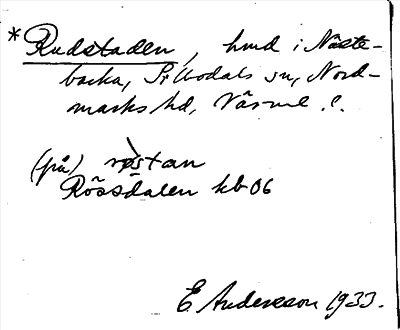 *Rudstaden, hmd i Näste-
backa, Sillbodals sn, Nord-
marks hd, Värml.
(på) røstan
Rössdalen kb 06
E Andersson 1933.